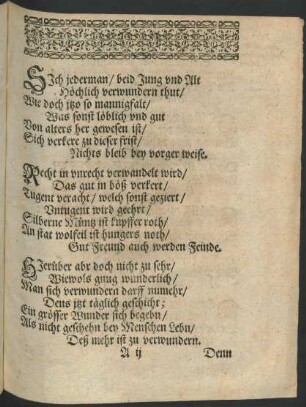 SIch jederman/ beid Jung vnd Alt
Höchlich verwundern thut/
Wie doch jtzo so mannigfalt/
Was sonst löblich vnd gut
Von alters her gewesen ist/
Sich verkere zu dieser frist/
Nichts bleib bey vorger weise.
Recht in vnrecht verwandelt wird/
Das gut in böß verkert/
Tugent veracht/ welch sonst geziert/
Vntugent wird geehrt/
Silberne Müntz ist kupffer roth/
An stat wolfeil ist hungers noth/
Gut Freund auch werden Feinde.
HIerüber abr doch nicht zu sehr/
Wiewols gnug wunderlich/
Man sich verwundern darff numehr/
Dens jtzt täglich geschicht;
Ein grösser Wunder sich begebn/
Als nicht geschehn bey Menschen Lebn/
Deß mehr ist zu verwundern.
A ij Denn